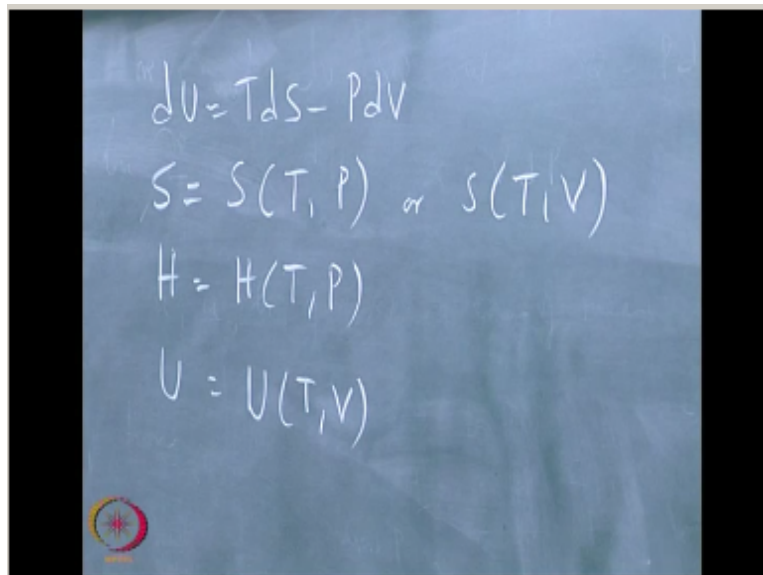 dU = TdS - PdV
S = S(T, P) or S(T, V)
H = H(T, P)
U = U(T, V)